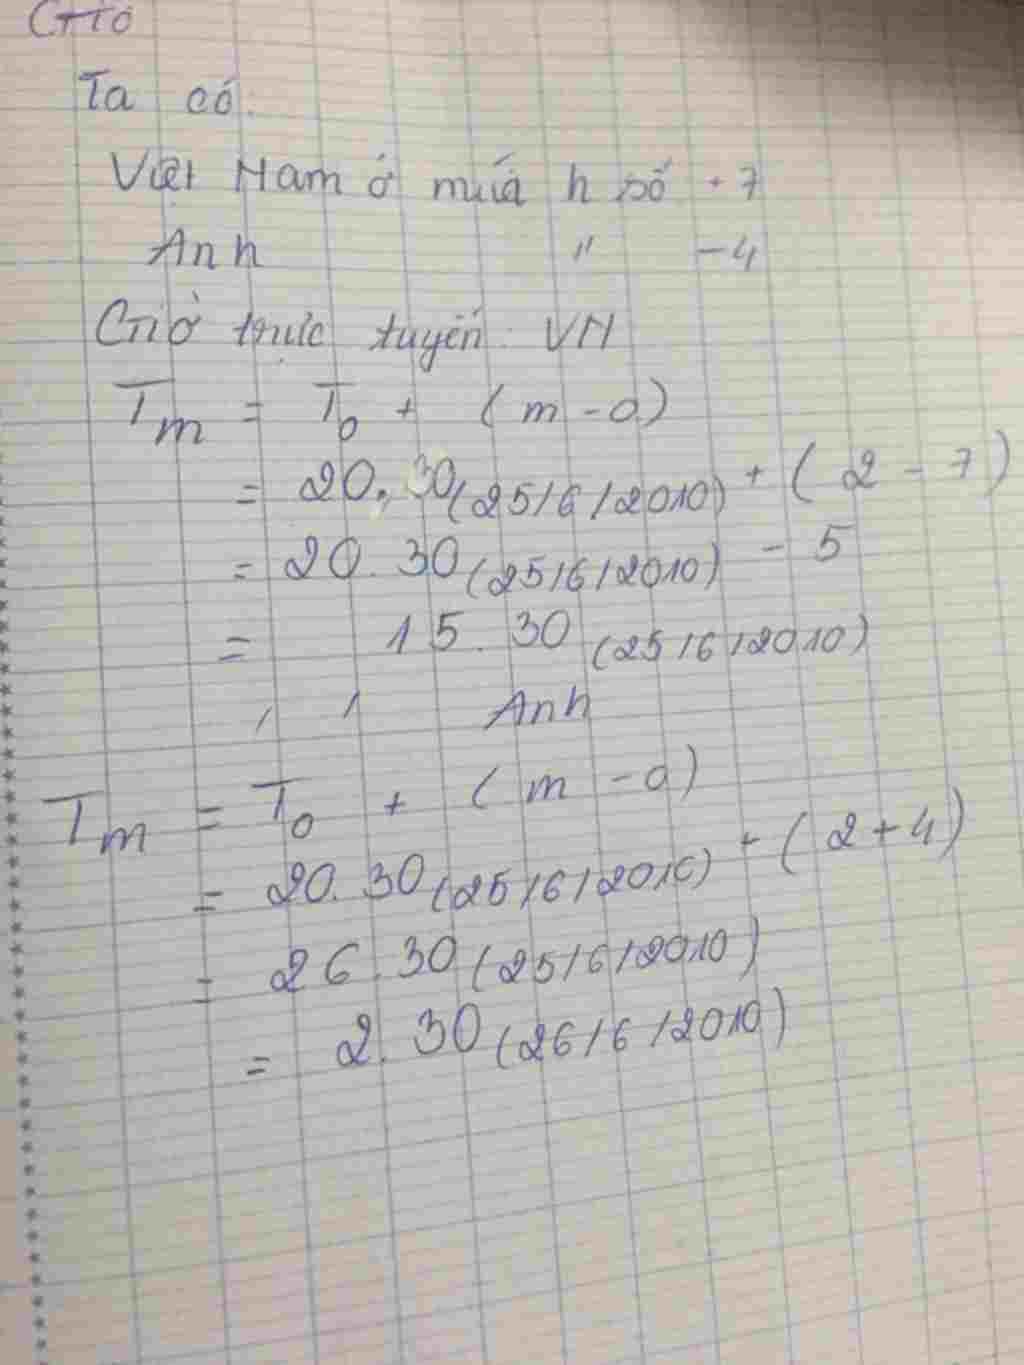 Giờ
Ta có:
Việt Nam ở múi h số + 7
Anh " - 4
Giờ trực tuyến: VN
Tm = To + ( m - 0 )
= 20.30 (25/6/2010) + ( 2 - 7 )
= 20.30 (25/6/2010) - 5
= 15.30 (25/6/2010)
, , Anh
Tm = To + ( m - 0 )
= 20.30 (25/6/2010) + ( 2 + 4 )
= 26.30 (25/6/2010)
= 2.30 (26/6/2010)